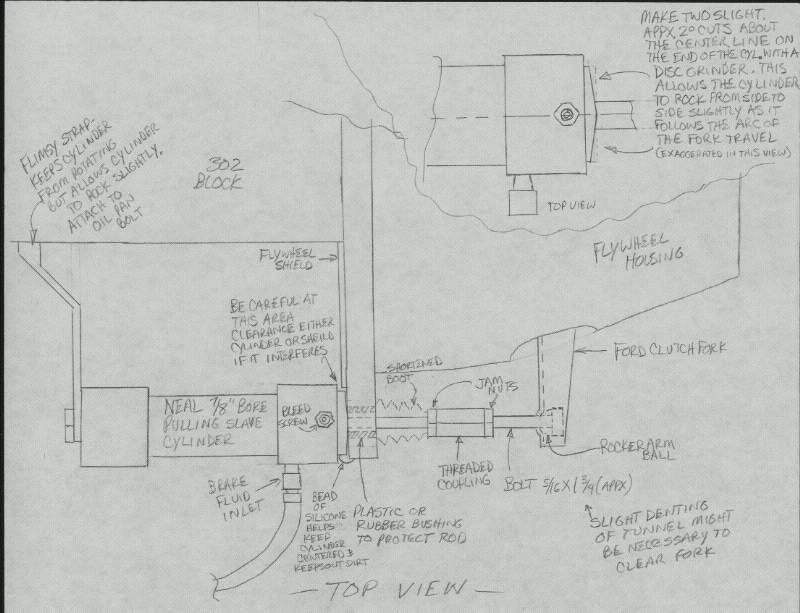 MAKE TWO SLIGHT.
APPX. 2° CUTS ABOUT
THE CENTER LINE ON
THE END OF THE CYL. WITH A
DISC GRINDER. THIS
ALLOWS THE CYLINDER
TO ROCK FROM SIDE TO
SIDE SLIGHTLY AS IT
FOLLOWS THE ARC OF
THE FORK TRAVEL
(EXAGGERATED IN THIS VIEW)
TOP VIEW
FLIMSY STRAP-
KEEPS CYLINDER
FROM ROTATING
BUT ALLOWS CYLINDER
TO ROCK SLIGHTLY.
ATTACH TO
OIL PAN
BOLT
302
BLOCK
FLYWHEEL
SHIELD
FLYWHEEL
HOUSING
BE CAREFUL AT
THIS AREA
CLEARANCE EITHER
CYLINDER OR SHEILD
IF IT INTERFERES
SHORTENED
BOOT
JAM
NUTS
FORD CLUTCH FORK
NEAL 7/8" BORE
PULLING SLAVE
CYLINDER
BLEED
SCREW
THREADED
COUPLING
BOLT 5/16 X 1 3/4 (APPX)
ROCKER ARM
BALL
BRAKE
FLUID
INLET
BEAD
OF
SILICONE
HELPS
KEEP
CYLINDER
CENTERED &
KEEPS OUT DIRT
PLASTIC OR
RUBBER BUSHING
TO PROTECT ROD
SLIGHT DENTING
OF TUNNEL MIGHT
BE NECESSARY TO
CLEAR FORK
- TOP VIEW -